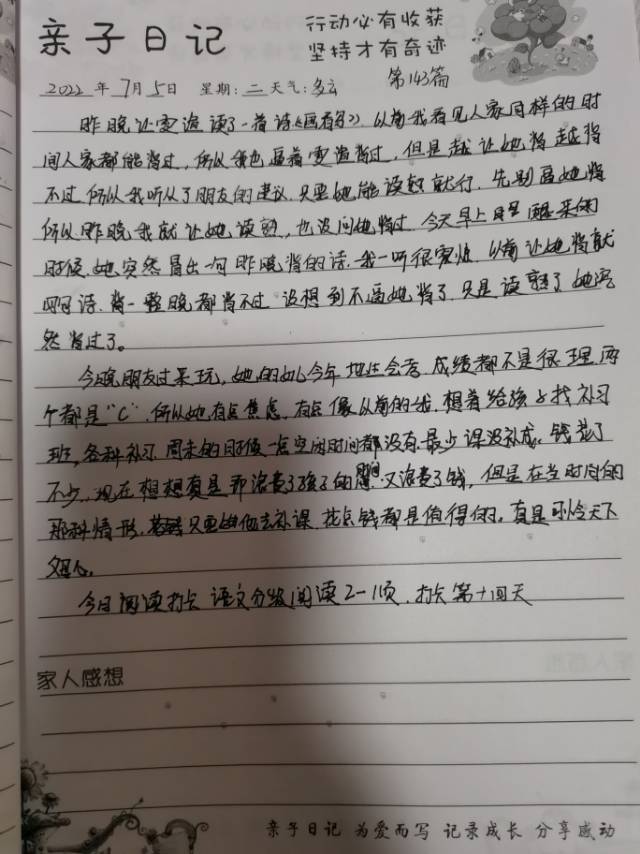 亲子日记
行动必有收获
坚持才有奇迹
第143篇
2022年7月5日 星期:二 天气:多云
昨晚让雯 读了一首诗《画 》以前我看见人家同样的时
间人家都能背过,所以我也逼着雯 背过,但是越让她背越背
不过,所以我听从了朋友的建议,只要她能读熟就行,先别逼她背
所以昨晚我就让她读熟,也没问她背过,今天早上 醒来的
时候,她突然冒出一句昨晚背的诗,我一听很 ,以前让她背就
诗,背一整晚都背不过,没想到不逼她背了,只是读熟了她居
然背过了。
今晚朋友过来玩,她的 今年 会考,成绩都不是很理
个都是“C”,所以她有点焦虑,有点像以前的我,想着给孩子找补习
班,各种补习,周末的时候一点空闲时间都没有,最少课没补成,钱花了
不少,现在想想真是即浪费了孩子的时间,又浪费了钱,但是在当时间的
那种情形,只要她 去补课,花点钱都是值得的。真是可怜天下
父母心。
今日阅读打卡 语文分级阅读2-11页,打卡第十四天
家人感想
亲子日记 为爱而写 记录成长 分享感动